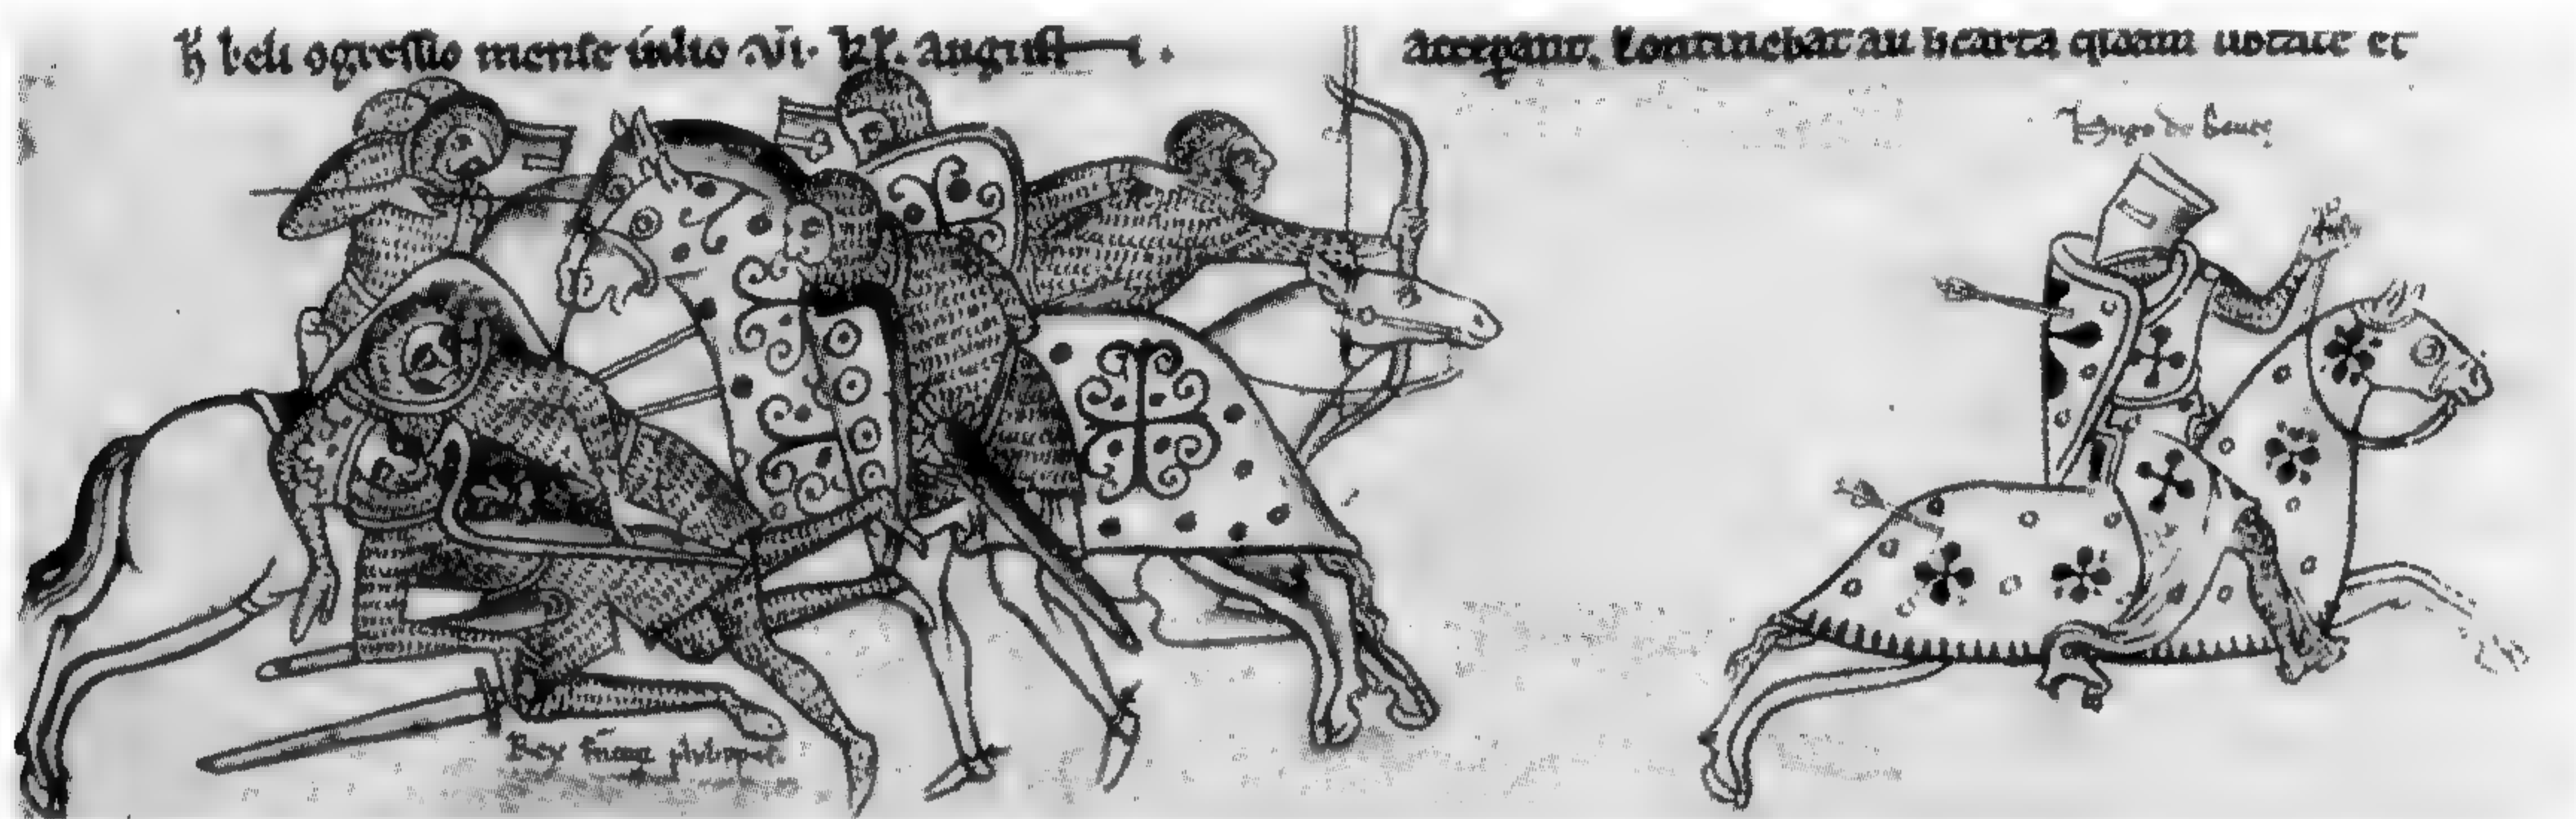 h beli ogressio mense iulio .vi. kl. august i.
acceperant. Continebat au hec carta quam uotate et
Hugo de boues
Rex francie philippus.